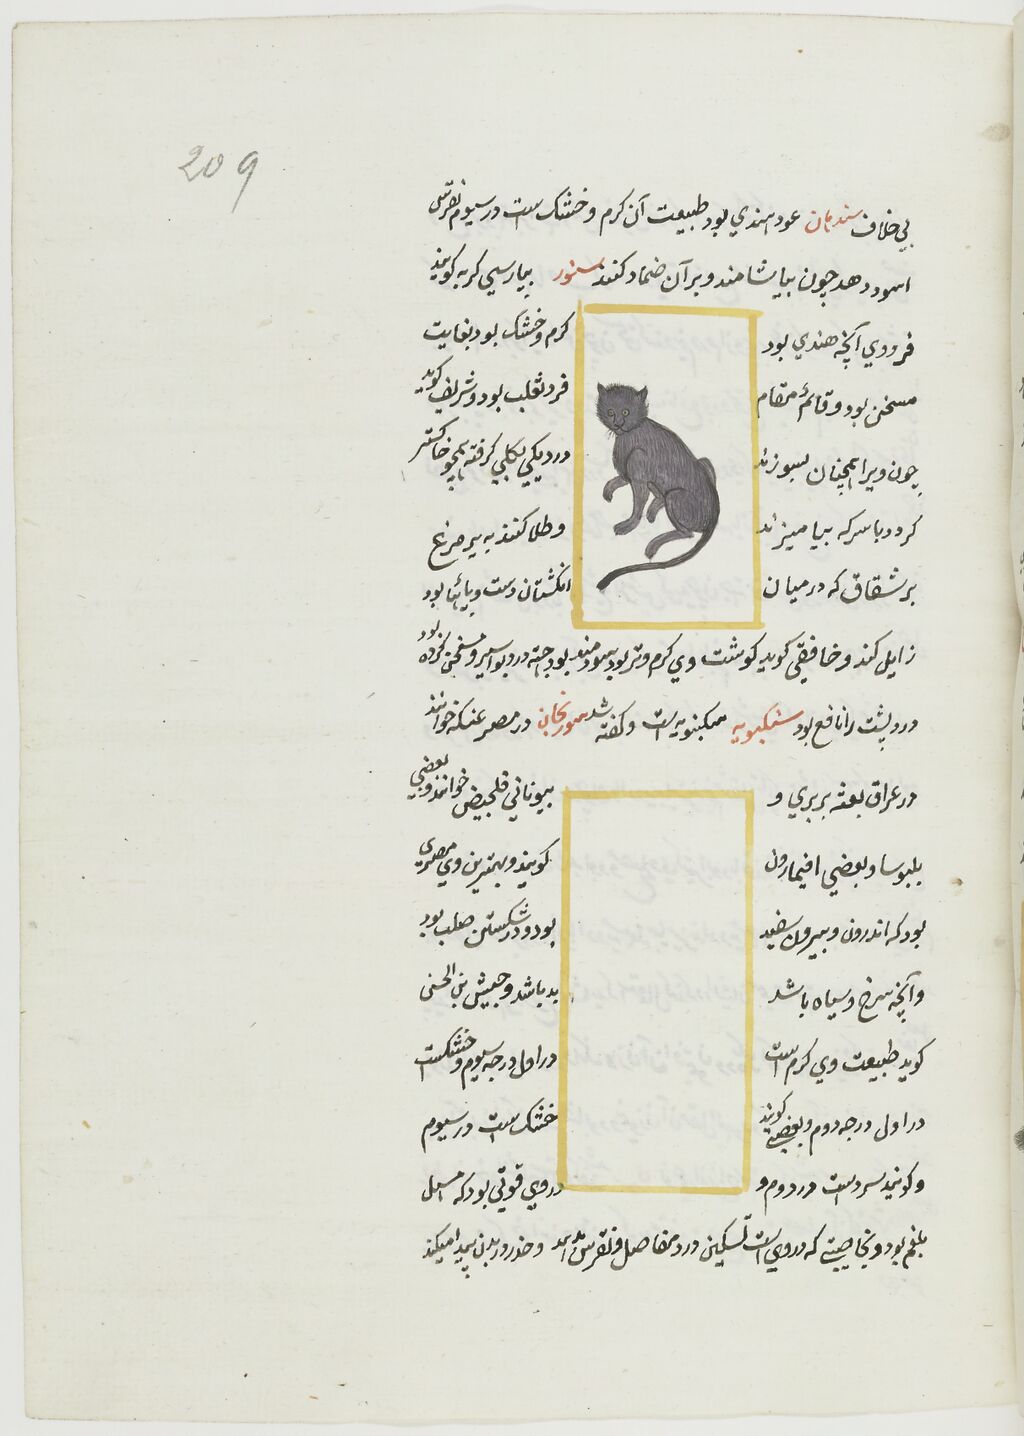 209
بی خلاف سندهان عود هندی بود طبیعت آن کرم و خشک است در سیوم نقرس
اسود دهد چون بیاشامند و بر آن ضماد کنند سنور بپارسی کربه کویند
فروی آنچه هندی بود کرم و خشک بود بغایت
مسخن بود و قائم مقام فرد ثعلب بود و شریف کوید
چون ویرا همچنان بسوزند در دیکی بکلی کرفته همچو خاکستر
کردد با سرکه بیامیزند و طلا کنند به پر مرغ
بر شقاق که در میان انکشتان دست و پائها بود
زایل کند و خافقی کوید کوشت وی کرم و تر بود سودمند بود جهة درد بواسیر و مسخن کرده بود
درد پشت را نافع بود سنکبویه سکبنویه است و کفته شد سورنجان در مصر عنکنه خوانند
در عراق لعبة بربری و بیونانی قلجیض خوانند و بعضی
بلبوسا و بعضی افیمارون کویند و بهترین وی مصری
بود که اندرون و بیرون سفید بود و در شکستن صلب بود
و آنچه سرخ و سیاه باشد بد باشد و حبیش بن الحسن
کوید طبیعت وی کرم است در اول درجه سیوم و خشکست
در اول درجه دوم و بعضی کویند خشک است در سیوم
و کویند سرد است در دوم و در وی قوتی بود که مسهل
بلغم بود و بخاصیتی که در وی است تسکین درد مفاصل و نقرس بدهد و خدر در بدن پیدا میکند